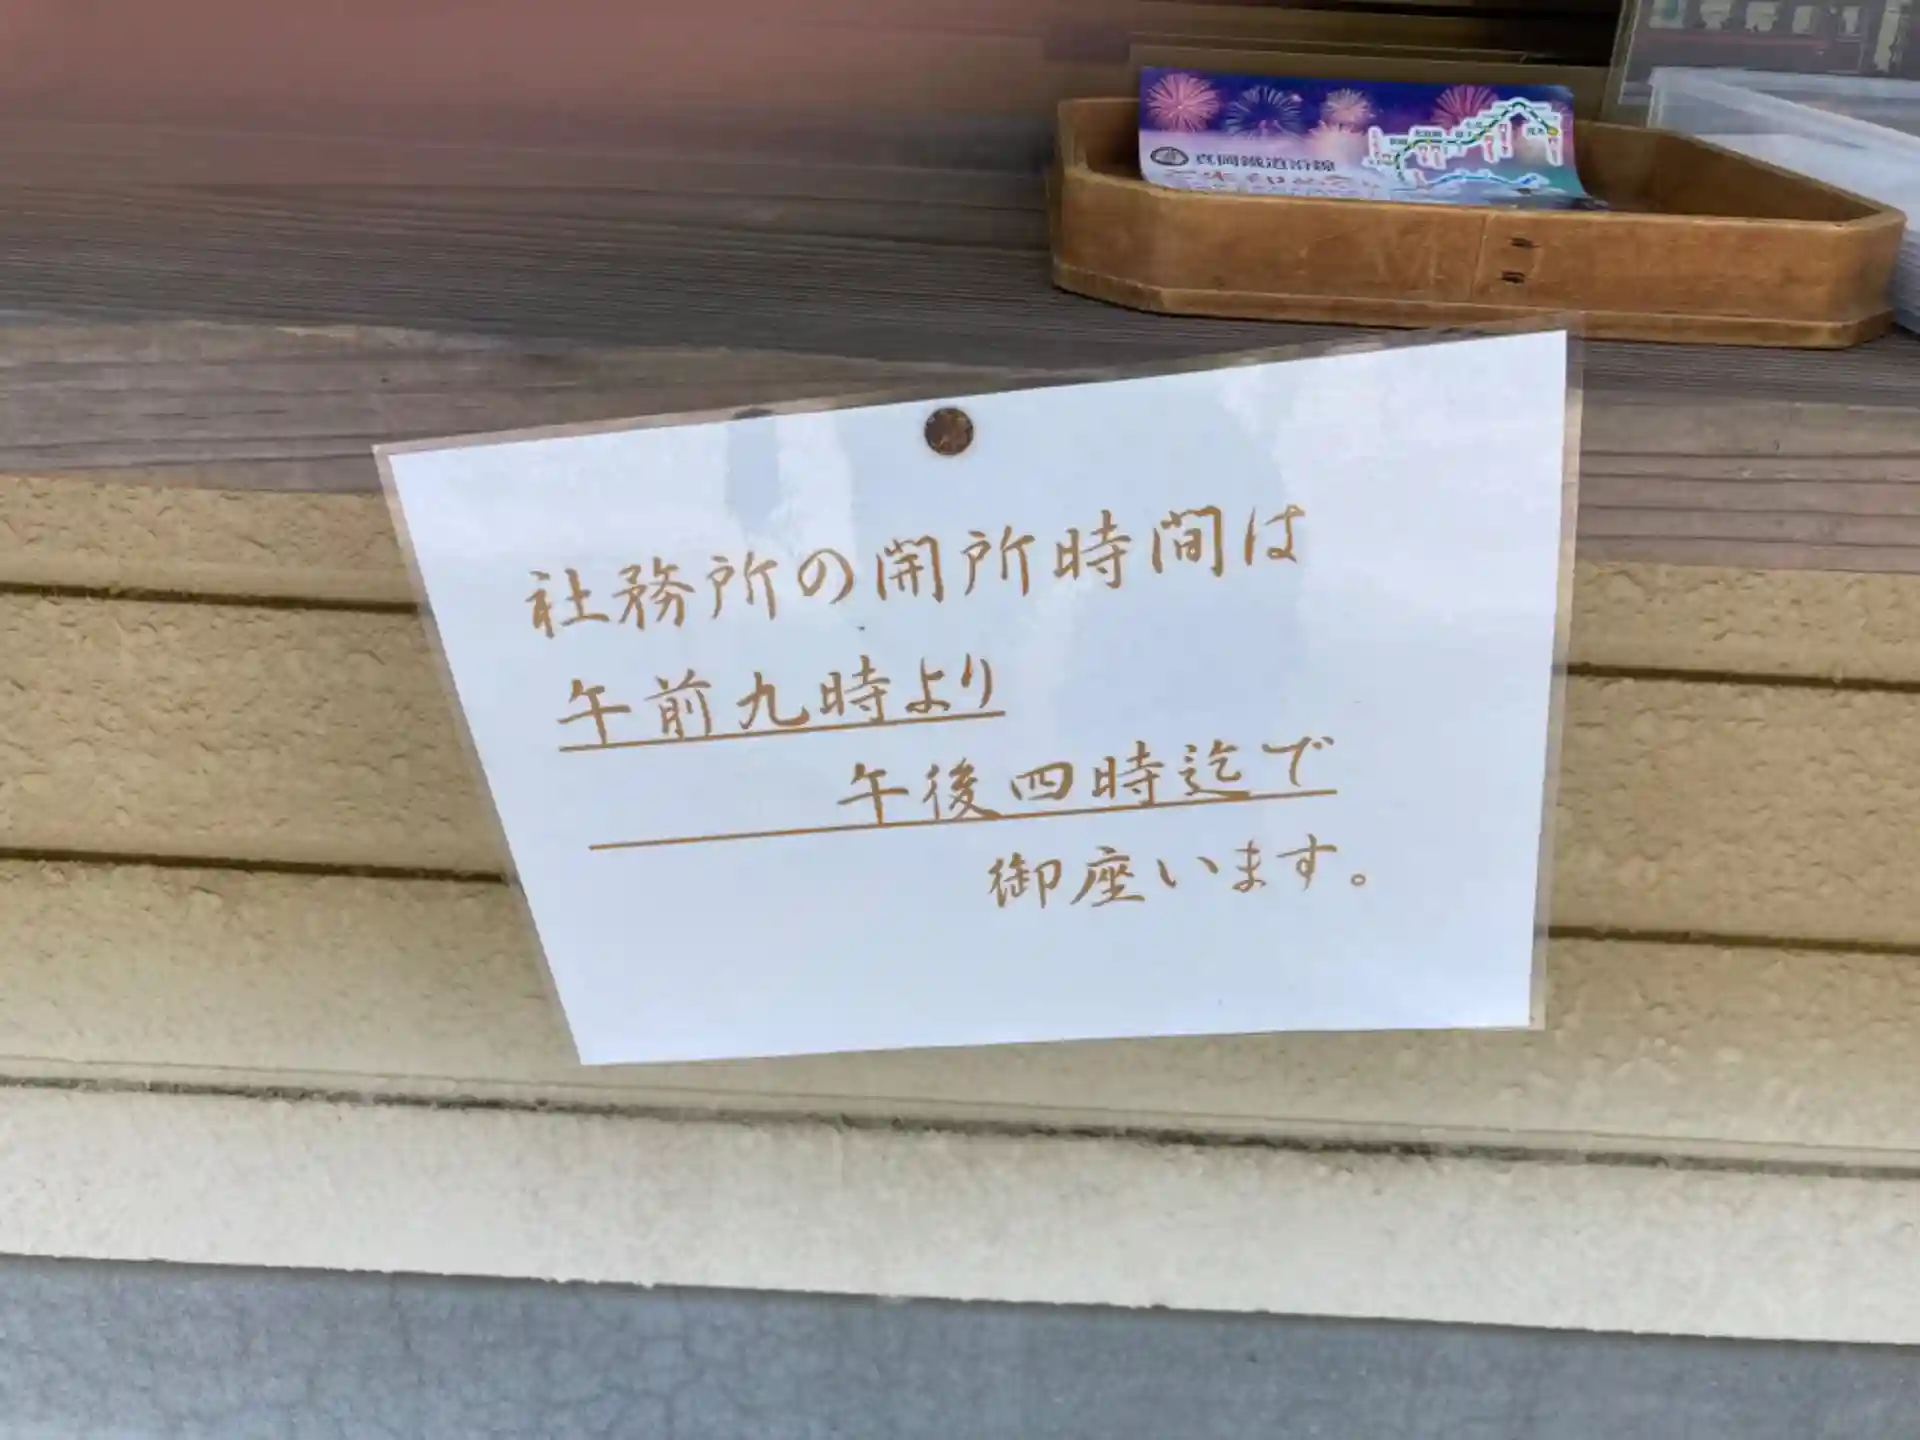 真岡鐵道沿線
社務所の開所時間は
午前九時より
午後四時迄で
御座います。